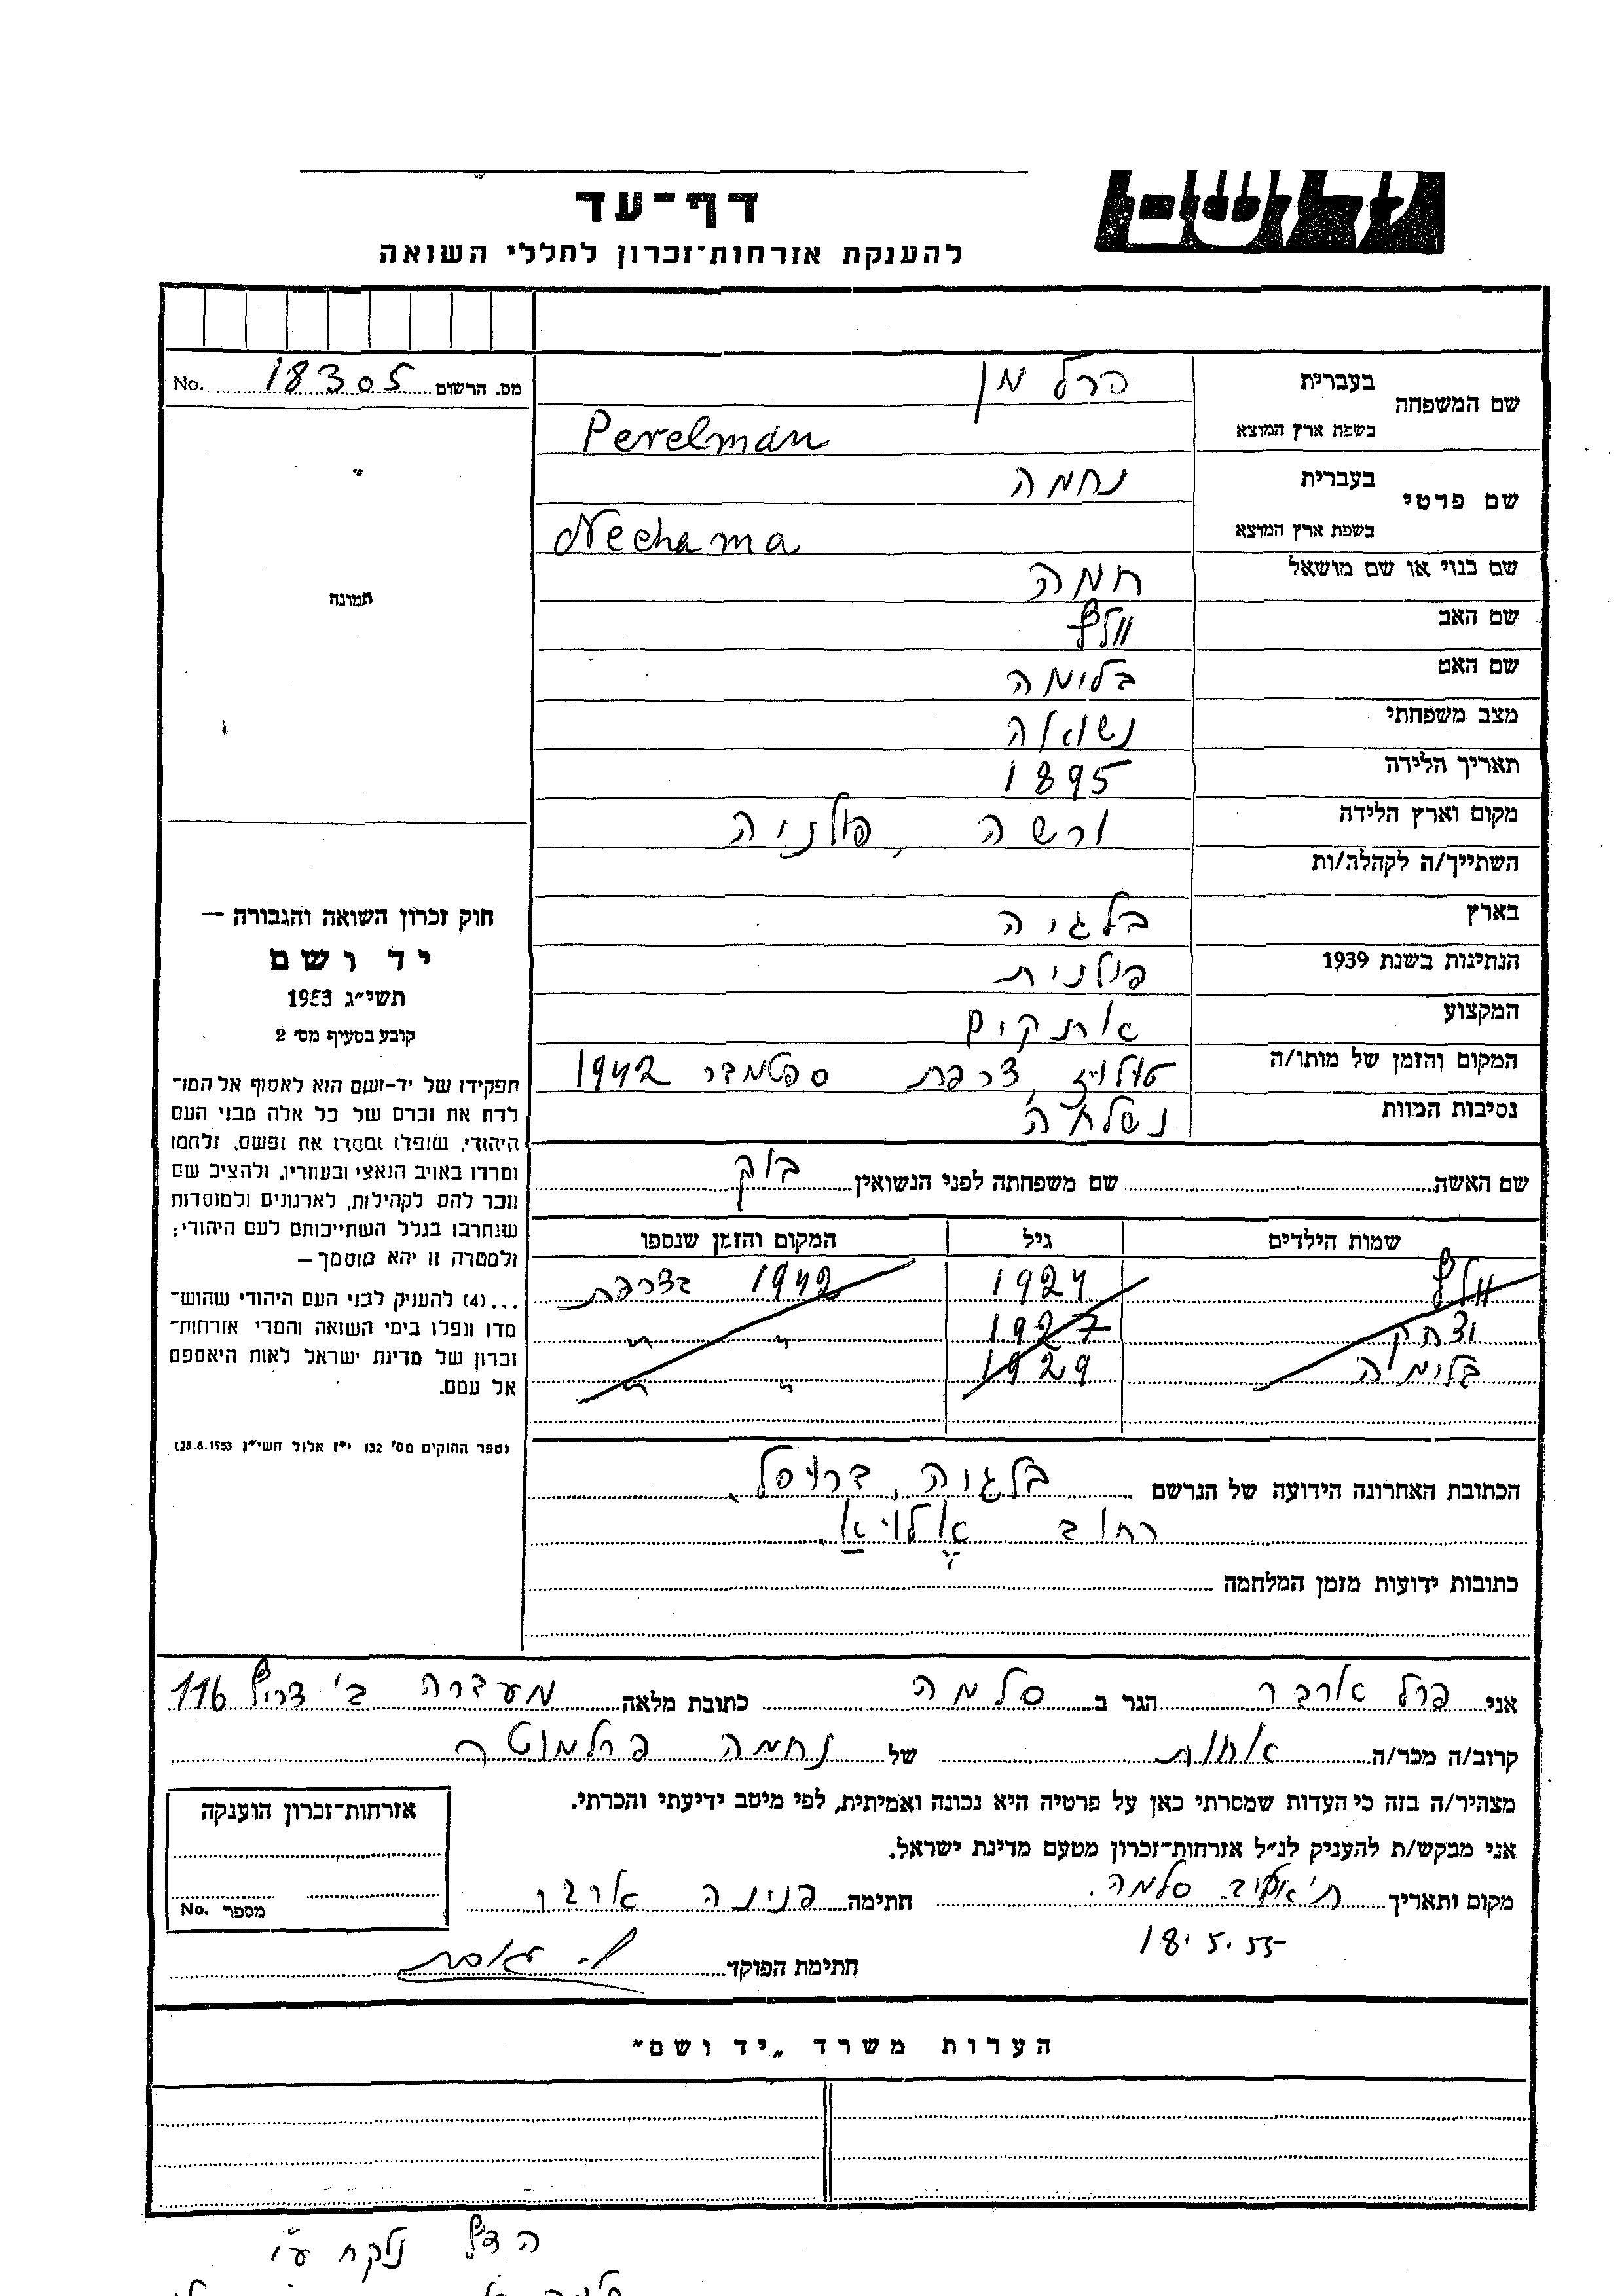 דף-עד
להענקת אזרחות-זכרון לחללי השואה
מס. הרשום 18305 No.
שם המשפחה
בעברית פרלמן
בשפת ארץ המוצא Perelman
שם פרטי
בעברית נחמה
בשפת ארץ המוצא Nechama
שם כנוי או שם מושאל חמה
שם האב וולף
שם האם בלימה
מצב משפחתי נשואה
תאריך הלידה 1895
מקום וארץ הלידה ורשה, פולניה
השתייך/ה לקהלה/ות
בארץ בלגיה
הנתינות בשנת 1939 פולנית
המקצוע
המקום והזמן של מותו/ה צרפת ספטמבר 1942
נסיבות המוות נשלחה
שם האשה שם משפחתה לפני הנשואין
שמות הילדים גיל המקום והזמן שנספו
וולף 1924 1942 בצרפת
יצחק 1927 " "
בלימה 1929 " "
הכתובת האחרונה הידועה של הנרשם בלגיה, בריסל
רחוב
כתובות ידועות מזמן המלחמה
תמונה
חוק זכרון השואה והגבורה —
יד ושם
תשי"ג 1953
קובע בסעיף מס' 2
תפקידו של יד-ושם הוא לאסוף אל המו־
לדת את זכרם של כל אלה מבני העם
היהודי, שנפלו ומסרו את נפשם, נלחמו
ומרדו באויב הנאצי ובעוזריו, ולהציב שם
וזכר להם לקהילות, לארגונים ולמוסדות
שנחרבו בגלל השתייכותם לעם היהודי;
ולמטרה זו יהא מוסמך —
...(4) להעניק לבני העם היהודי שהוש־
מדו ונפלו בימי השואה והמרי אזרחות־
זכרון של מדינת ישראל לאות היאספם
אל עמם.
(ספר החוקים מס' 132 י"ז אלול תשי"ג 28.8.1953)
אני פרל ארבר הגר ב סלמה כתובת מלאה מעברה ב' צריף 116
קרוב/ה מכר/ה אחות של נחמה
מצהיר/ה בזה כי העדות שמסרתי כאן על פרטיה היא נכונה ואמיתית, לפי מיטב ידיעתי והכרתי.
אני מבקש/ת להעניק לנ"ל אזרחות-זכרון מטעם מדינת ישראל.
מקום ותאריך ת"אביב סלמה. חתימה פנינה ארבר
18.5.55
חתימת הפוקד
אזרחות-זכרון הוענקה
מספר No.
הערות משרד „יד ושם"
הדף נלקח ע"י